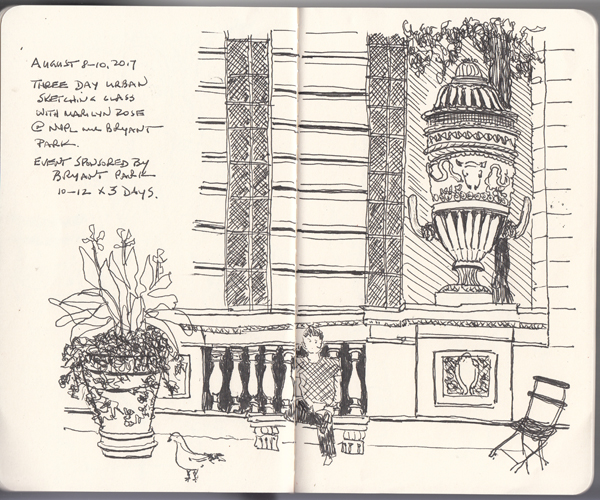 AUGUST 8-10, 2017
THREE DAY URBAN
SKETCHING CLASS
WITH MARILYN ROSE
@ NYPL and BRYANT
PARK.
EVENT SPONSORED BY
BRYANT PARK
10-12 x 3 DAYS.